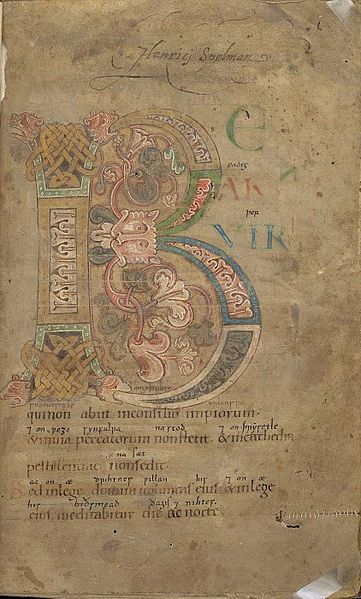 Henrici Spelman
B
E
eadig
ATVS
wer
VIR
qui non abiit in consilio impiorum.
⁊ on wege synfulra ne stod ⁊ on
& in uia peccatorum non stetit. & in cathedra
na sæt
pestilentiae non sedit.
ac on æ drihtnes willan his ⁊ on æ
Sed in lege domini uoluntas eius & in lege
his dæges ⁊ nihtes
eius meditabitur die ac nocte.